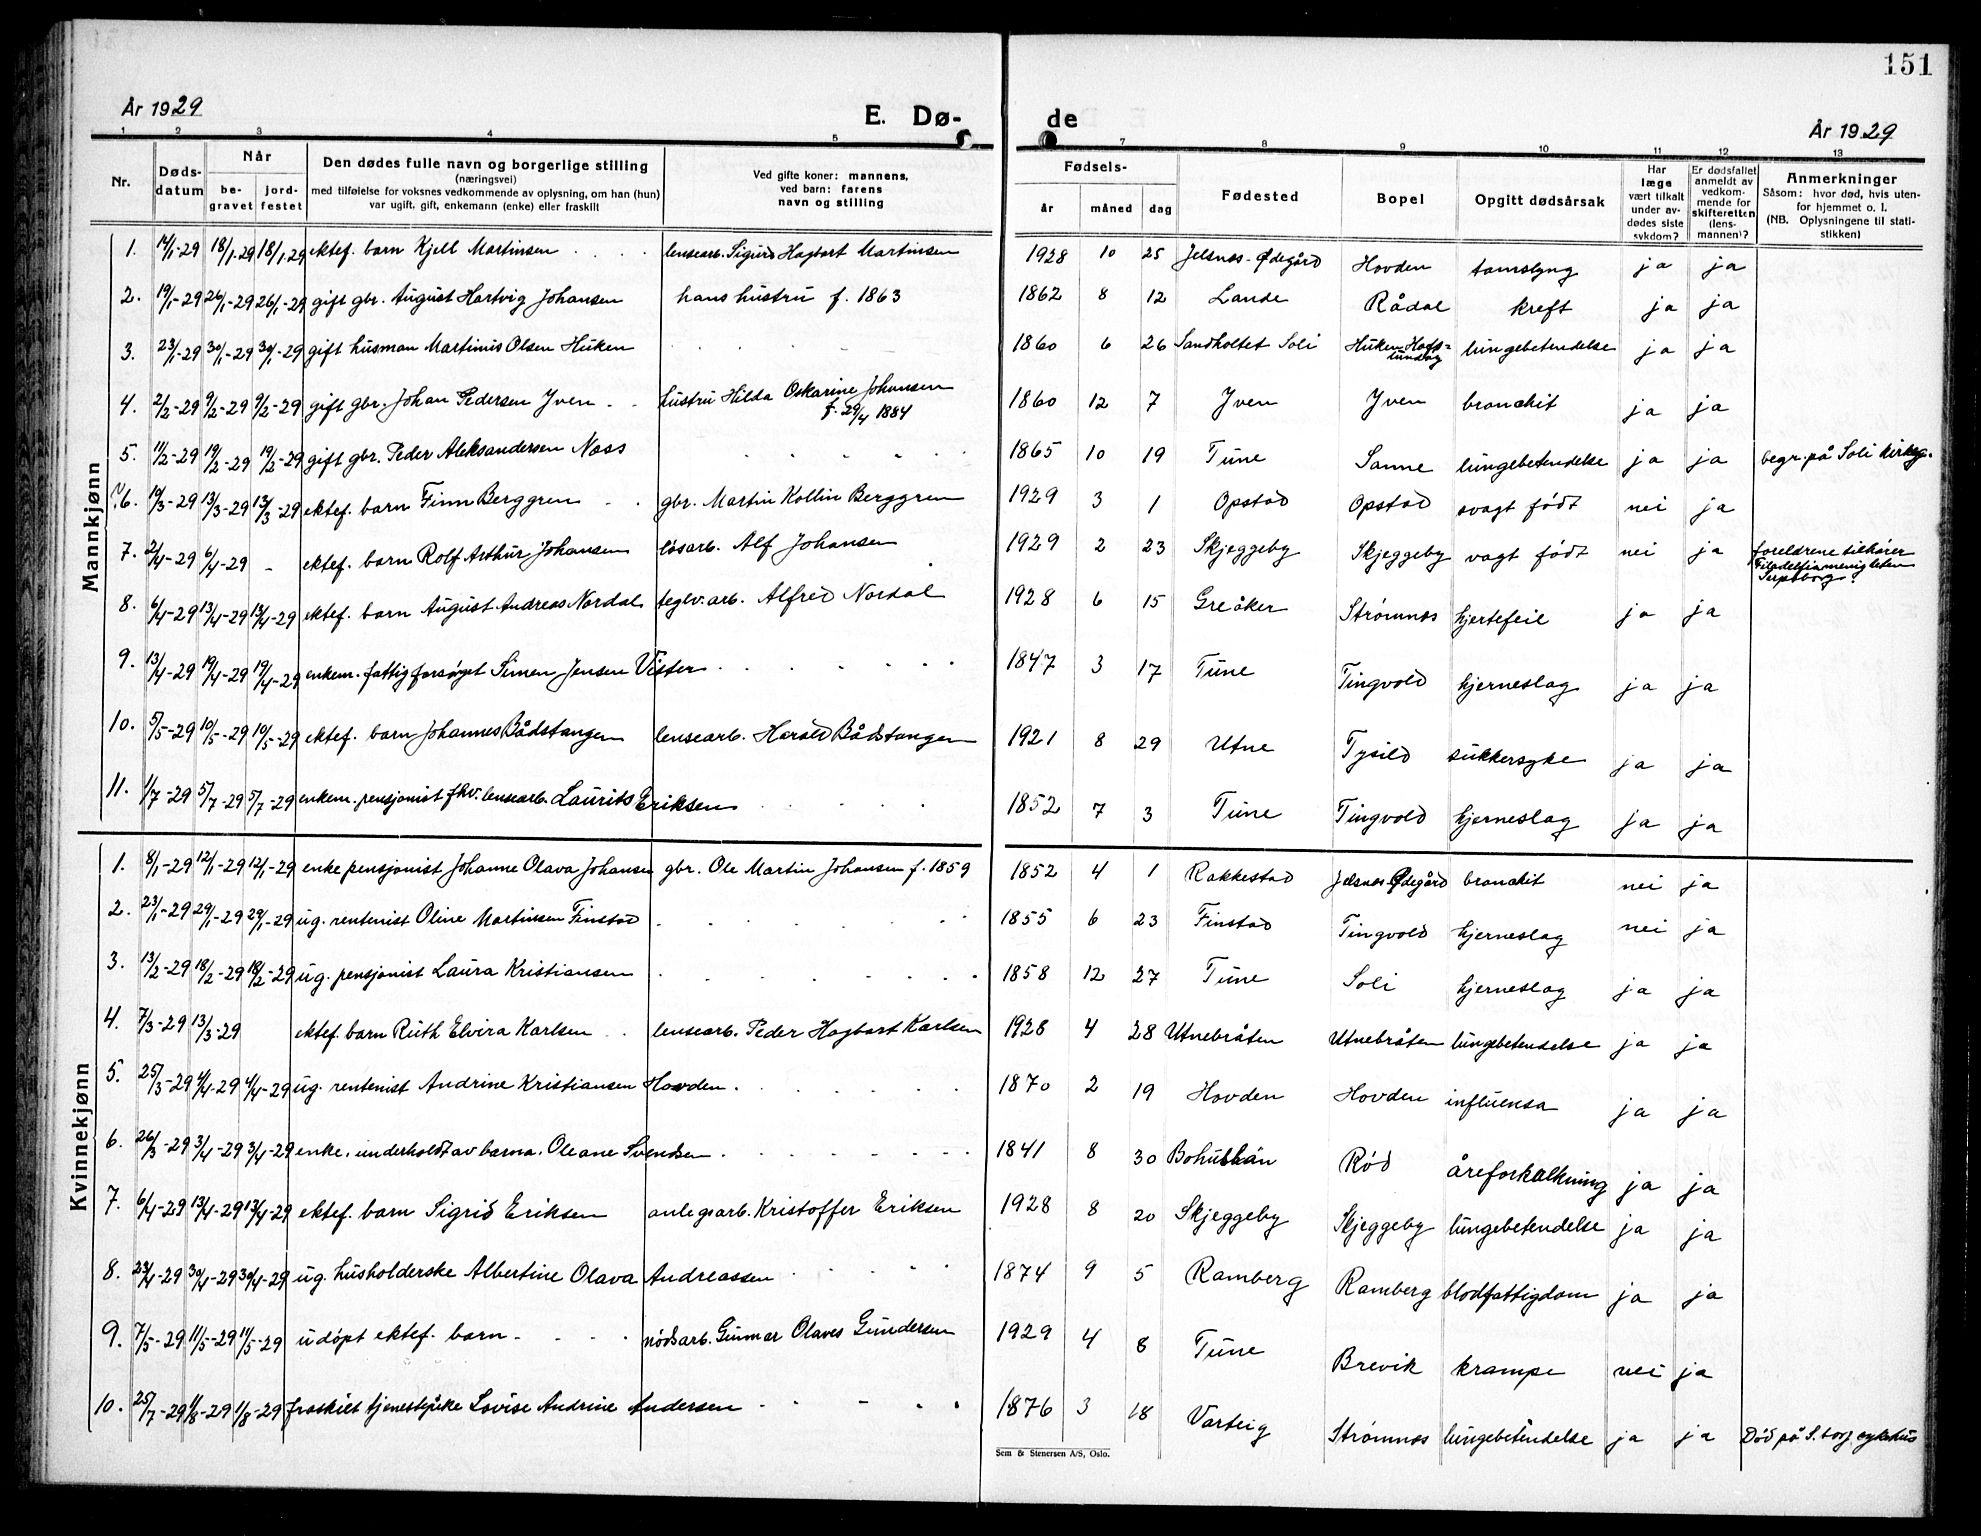 151
År 1929
E. Dø-
de
År 1929
1 2 3 4 5 7 8 9 10 11 12 13
Nr.
Døds-
datum
Når
be-
gravet
jord-
festet
Den dødes fulle navn og borgerlige stilling
(næringsvei)
med tilføielse for voksnes vedkommende av oplysning, om han (hun)
var ugift, gift, enkemann (enke) eller fraskilt
Ved gifte koner: mannens,
ved barn: farens
navn og stilling
Fødsels-
år måned dag
Fødested
Bopel
Opgitt dødsårsak
Har
læge
vært tilkalt
under av-
dødes siste
sykdom?
Er dødsfallet
anmeldt av
vedkom-
mende for
skifteretten
(lens-
mannen)?
Anmerkninger
Såsom: hvor død, hvis uten-
for hjemmet o. l.
(NB. Oplysningene til stati-
stikken)
Mannkjønn
1. 14/1-29 18/1-29 18/1-29 ektef. barn Kjell Martinsen lensearb. Sigurd Hagbart Martinsen 1928 10 25 Jelsnes-Ødegård Hovden tarmslyng ja ja
2. 19/1-29 26/1-29 26/1-29 gift gbr. August Hartvig Johansen hans hustru f. 1863 1862 8 12 Lande Rådal kreft ja ja
3. 23/1-29 30/1-29 30/1-29 gift husman Martinus Olsen Huken 1860 6 26 Sandholtet Soli Huken lungebetendelse ja ja
4. 2/2-29 9/2-29 9/2-29 gift gbr. Johan Pedersen Yven hustru Hilda Oskarine Johansen
f. 29/4 1884 1860 12 7 Yven Yven bronckit ja ja
5. 11/2-29 19/2-29 19/2-29 gift gbr. Peder Aleksandersen Næss 1865 10 19 Tune Sanne lungebetendelse ja ja begr. på Soli kirkeg.
6. 10/3-29 13/3-29 13/3-29 ektef. barn Finn Berggren gbr. Martin Kollin Berggren 1929 3 1 Opstad Opstad svagt født nei ja
7. 2/4-29 6/4-29 - ektef. barn Rolf Arthur Johansen løsarb. Alf Johansen 1929 2 23 Skjeggeby Skjeggeby vagt født nei ja foreldrene tilhører
Filadelfiamenigheten
Sarpsborg.
8. 6/4-29 13/4-29 13/4-29 ektef. barn August Andreas Nordal teglv.arb. Alfred Nordal 1928 6 15 Greåker Strømnes hjertefeil ja ja
9. 13/4-29 19/4-29 19/4-29 enkem. fattigforsørget Simen Jensen Vister 1847 3 17 Tune Tingvold hjerneslag ja ja
10. 5/5-29 10/5-29 10/5-29 ektef. barn Johannes Bådstangen lensearb. Harald Bådstangen 1921 8 29 Utne Tysild sukkersyke ja ja
11. 1/7-29 5/7-29 5/7-29 enkem. pensjonist fhv. lensearb. Laurits Eriksen 1852 7 3 Tune Tingvold hjerneslag ja ja
Kvinnekjønn
1. 8/1-29 12/1-29 12/1-29 enke pensjonist Johanne Olava Johansen gbr. Ole Martin Johansen f. 1859 1852 4 1 Rakkestad Jelsnes Ødegård bronckit nei ja
2. 23/1-29 29/1-29 29/1-29 ug. rentenist Oline Martinsen Finstad 1855 6 23 Finstad Tingvold hjerneslag nei ja
3. 13/2-29 18/2-29 18/2-29 ug. pensjonist Laura Kristiansen 1858 12 27 Tune Soli hjerneslag ja ja
4. 7/3-29 13/3-29 ektef. barn Ruth Elvira Karlsen lensearb. Peder Hagbart Karlsen 1928 4 28 Utnebråten Utnebråten lungebetendelse ja ja
5. 25/3-29 4/4-29 4/4-29 ug. rentenist Andrine Kristiansen Hovden 1870 2 19 Hovden Hovden influensa ja ja
6. 26/3-29 3/4-29 3/4-29 enke. underholdt av barna. Oleane Svendsen 1841 8 30 Bohuslän Rød åreforkalkning ja ja
7. 6/4-29 13/4-29 13/4-29 ektef. barn Sigrid Eriksen anlegsarb. Kristoffer Eriksen 1928 8 20 Skjeggeby Skjeggeby lungebetendelse ja ja
8. 23/4-29 30/4-29 30/4-29 ug. husholderske Albertine Olava Andreassen 1874 9 5 Ramberg Ramberg blodfattigdom ja ja
9. 7/5-29 11/5-29 11/5-29 udøpt ektef. barn nødsarb. Gunnar Olaves Gundersen 1929 4 8 Tune Brevik krampe nei ja
10. 25/7-29 1/8-29 1/8-29 fraskilt tjenestepike Lovise Andrine Andersen 1876 3 18 Varteig Strømnes lungebetendelse ja ja Død på S.borg sykehus
Sem & Stenersen A/S, Oslo.